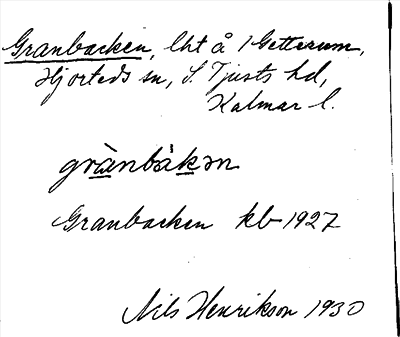 Granbacken, lht å 1 Getterum,
Hjorteds sn, S. Tjusts hd,
Kalmar l.
grànbákən
Granbacken kb 1927
Nils Henrikson 1930